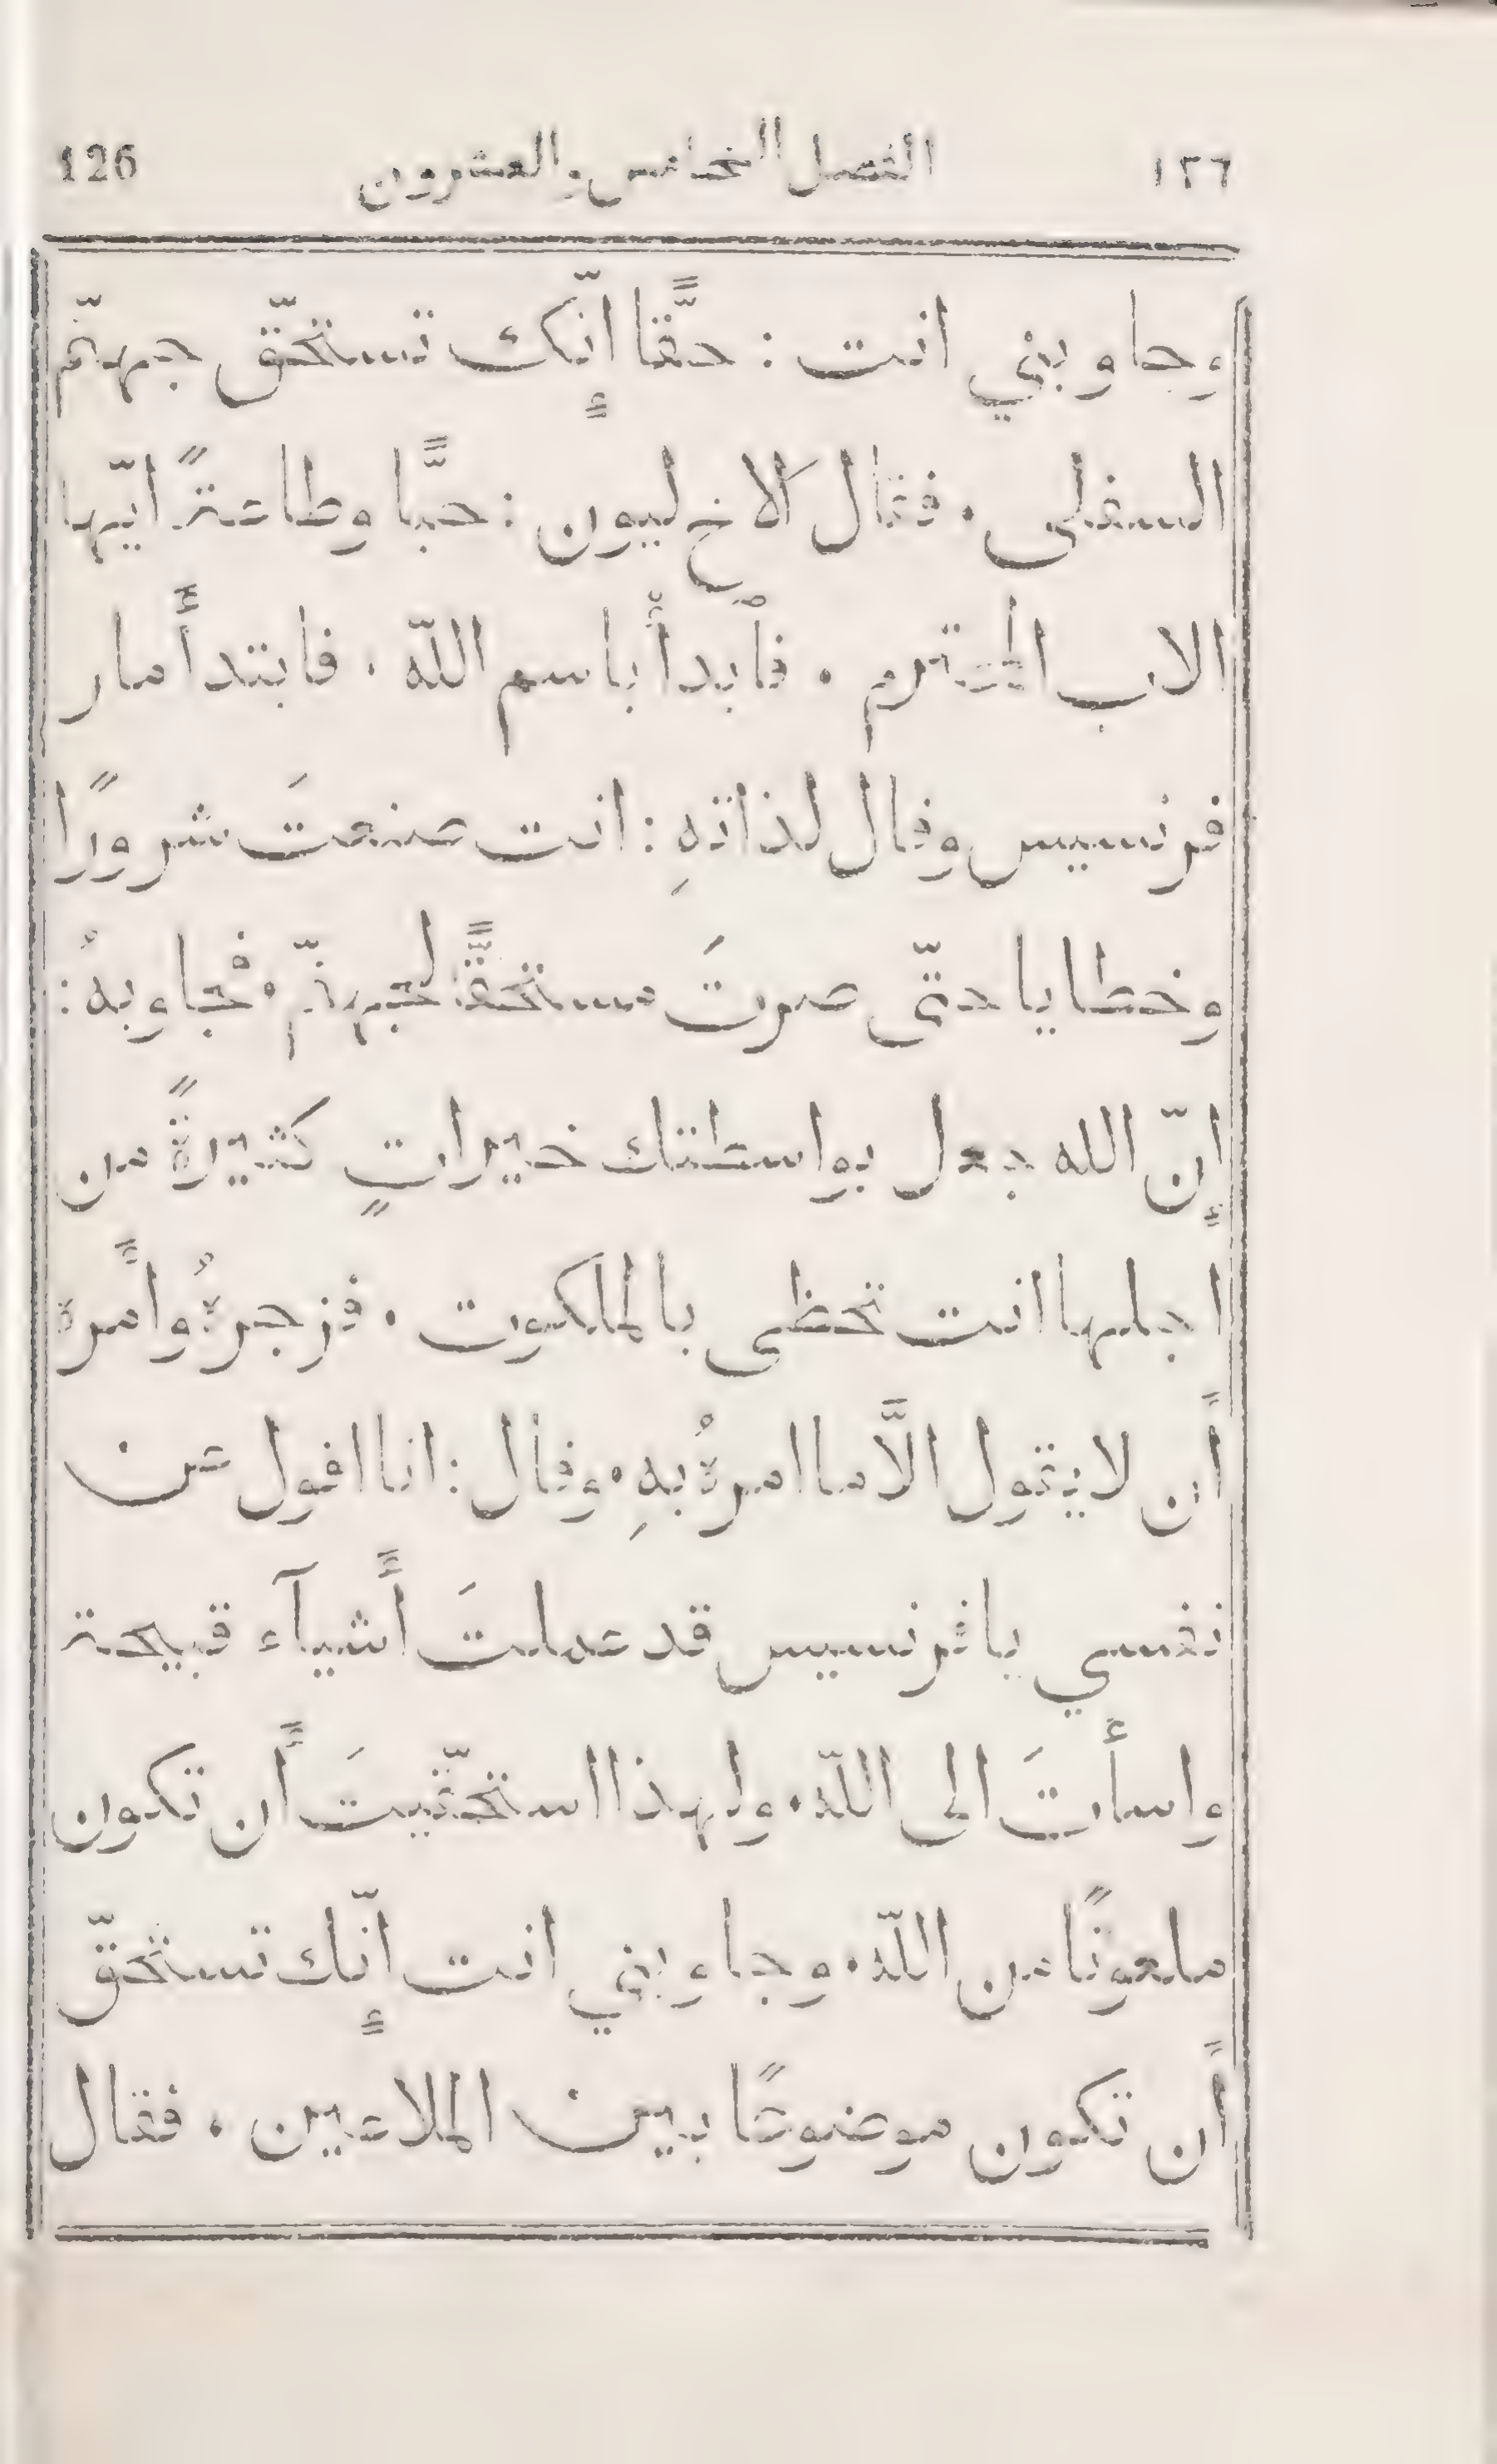 126 الفصل الخامس والعشرون ١٢٦
وجاوبني انت : حقًّا إنّك تستحقّ جهنّم
السفلى . فقال الاخ ليون : حبًّا وطاعةً ايّها
الاب المحترم . فٱبدأْ باسم اللّه . فابتدأَ مار
فرنسيس وقال لذاتهِ : انت صنعتَ شرورًا
وخطايا حتّى صرتَ مستحقًّا لجهنّم . فجاوبهُ :
إنّ الله جعل بواسطتك خيراتٍ كثيرةً من
اجلها انت تحظى بالملكوت . فزجرهُ وأَمره
أَن لا يقول الَّا ما امرهُ بهِ . وقال : انا اقول عن
نفسي يا فرنسيس قد عملتَ أَشيآء قبيحة
واسأتَ الى اللّه . ولهذا استحقّيتَ أَن تكون
ملعونًا من اللّه . وجاوبني انت إنّك تستحقّ
أَن تكون موضوعًا بين الملاعين . فقال